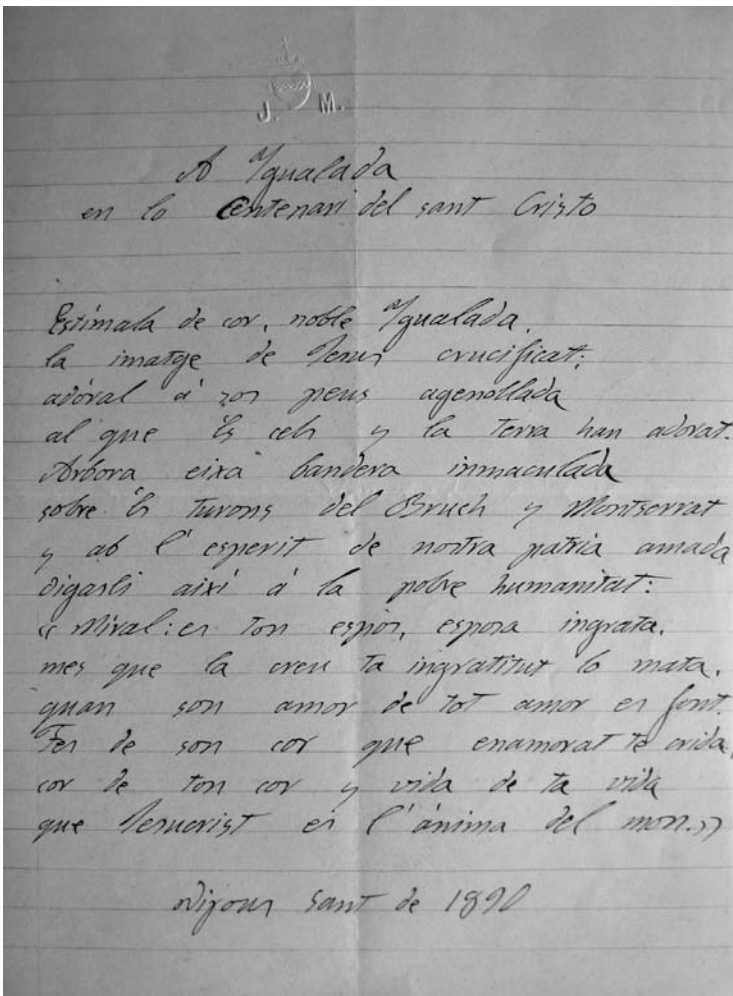 J. M.
A Igualada
en lo Centenari del sant Cristo
Estímala de cor, noble Igualada,
la imatge de Jesus crucificat;
adóral á sos peus agenollada
al que 'ls cels y la terra han adorat.
Arbora eixa bandera inmaculada
sobre 'ls turons del Bruch y Montserrat
y ab l' esperit de nostra patria amada
digasli aixi á la pobre humanitat:
«Miral: es ton espós, esposa ingrata,
mes que la creu ta ingratitut lo mata,
quan son amor de tot amor es font.
Fes de son cor que enamorat te crida,
cor de ton cor y vida de ta vida
que Jesucrist es l' ánima del mon.»
Dijous Sant de 1890